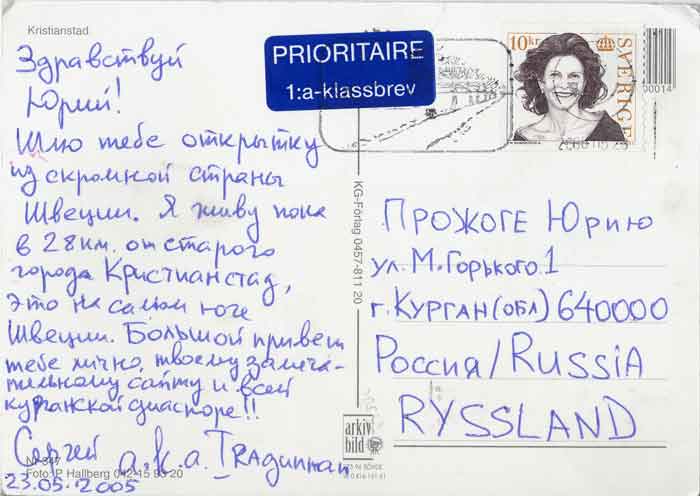 Kristianstad
Здравствуй
Юрий!
Шлю тебе открытку
из скромной страны
Швеции. Я живу пока
в 28 км. от старого
города Кристианстад,
это на самом юге
Швеции. Большой привет
тебе лично, твоему замеча-
тельному сайту и всей
курганской диаспоре!!
Сергей a.k.a. Tragunman
23.05.2005
Foto: P Hallberg 042-15 93 20
PRIORITAIRE
1:a-klassbrev
10kr
SVERIGE
00014
KG-Förlag 0457-811 20
arkiv
bild
Прожоге Юрию
ул. М. Горького 1
г. Курган (обл) 640000
Россия/Russia
RYSSLAND